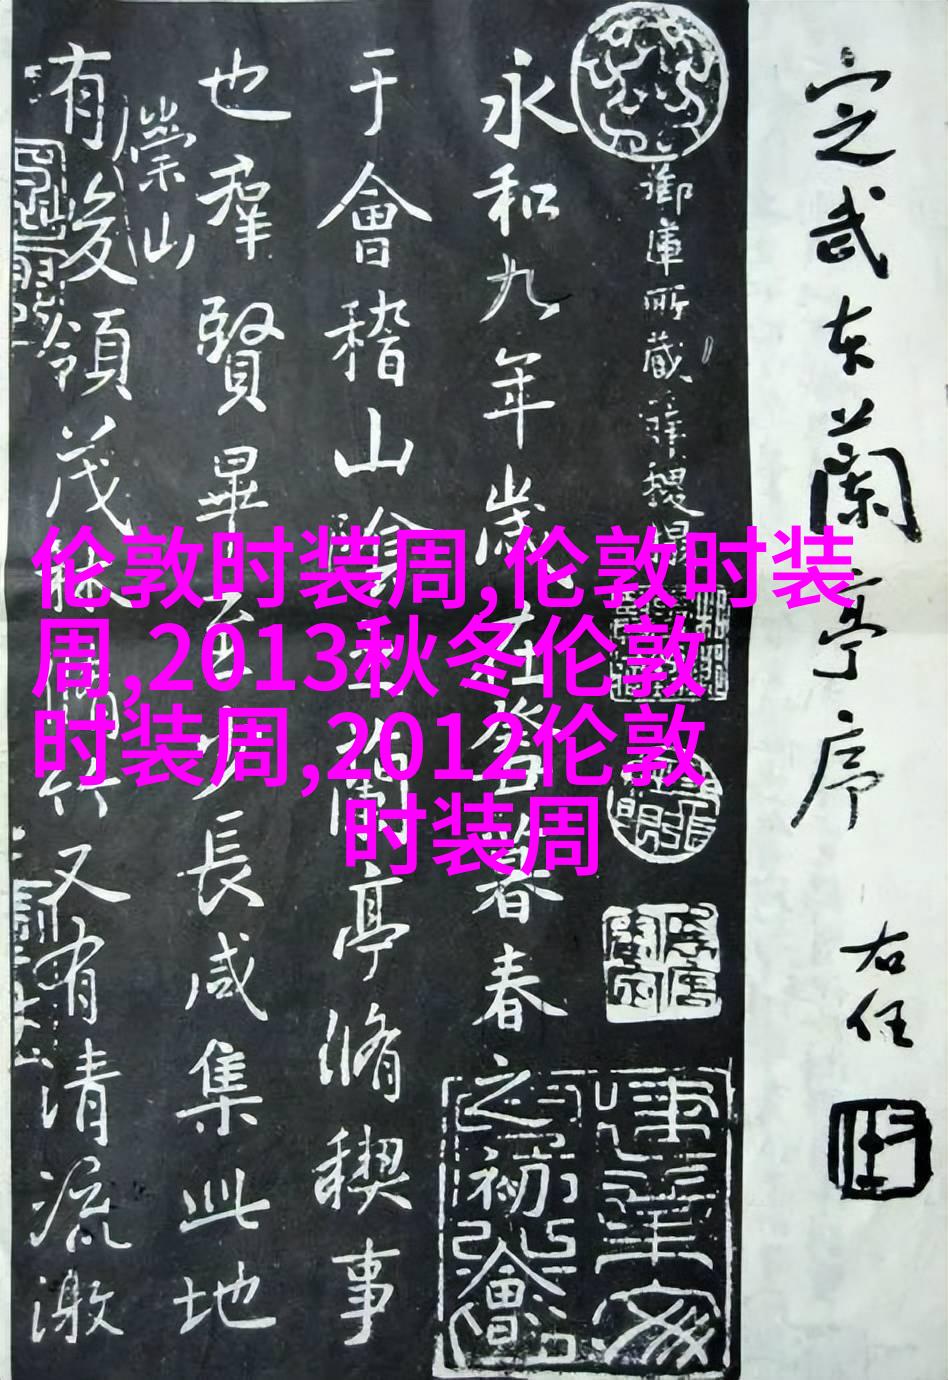 定武本蘭亭序
右任
御府所藏
永和九年歲在癸丑暮春之初會
于會稽山陰之蘭亭脩稧事
也羣賢畢至少長咸集此地
有崇山
峻領茂林脩竹又有清流激
伦敦时装周,伦敦时装
周,2013秋冬伦敦
时装周,2012伦敦
时装周